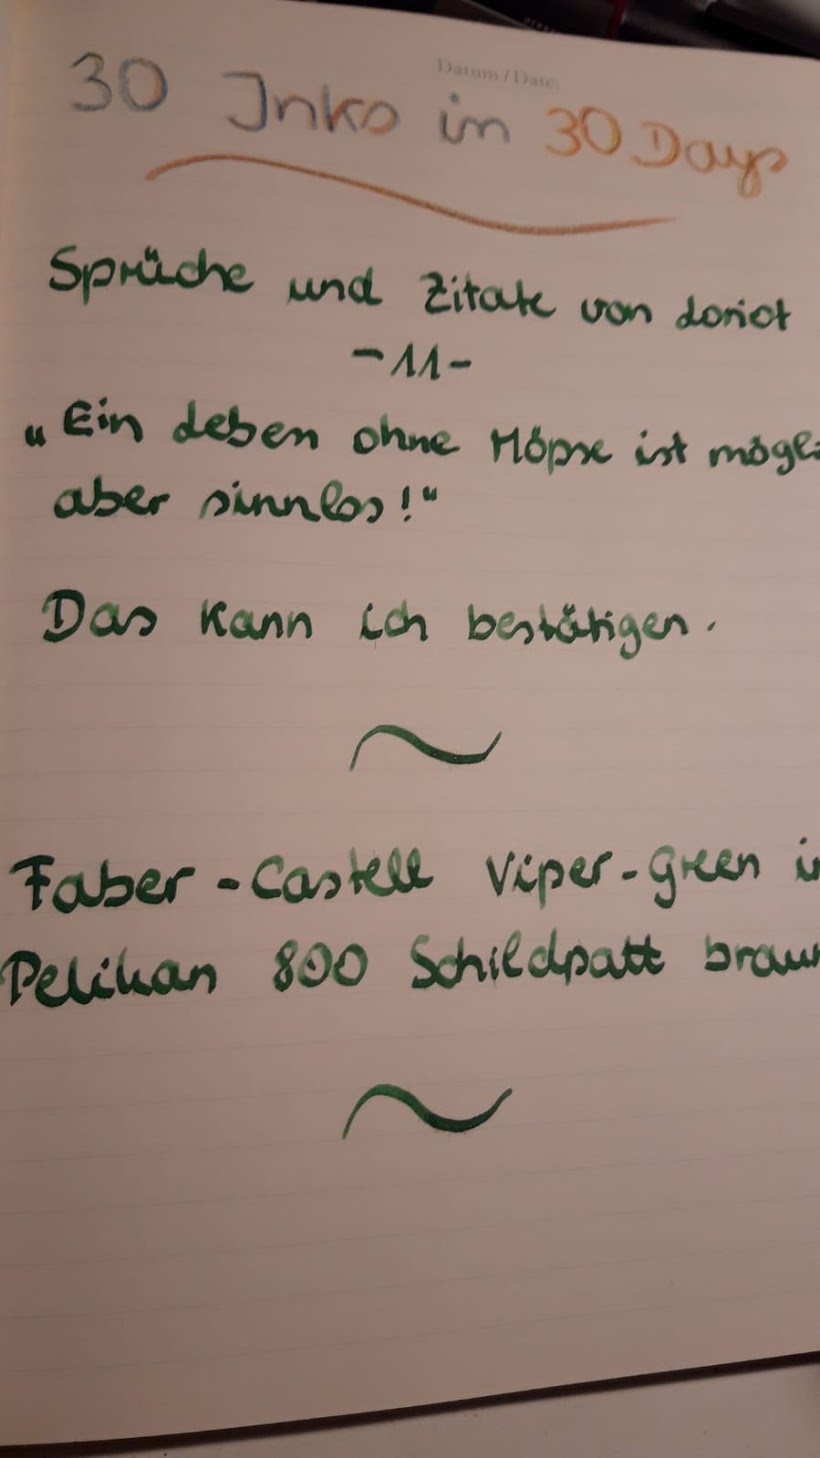 Datum / Date:
30 Inks in 30 Days
Sprüche und Zitate von Loriot
-11-
„Ein Leben ohne Möpse ist mögli
aber sinnlos!“
Das kann ich bestätigen.
Faber-Castell Viper-Green in
Pelikan 800 Schildpatt braun